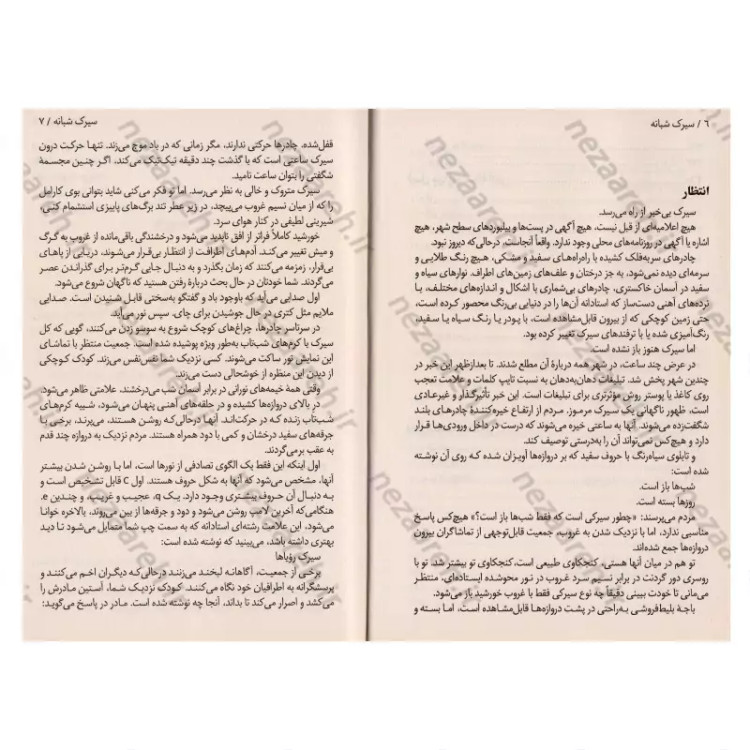 ۶ / سیرک شبانه
انتظار
سیرک بی‌خبر از راه می‌رسد.
هیچ اعلامیه‌ای از قبل نیست. هیچ آگهی در پست‌ها و بیلبوردهای سطح شهر، هیچ
اشاره یا آگهی در روزنامه‌های محلی وجود ندارد. واقعاً آنجاست. درحالی‌که دیروز نبود.
چادرهای سربه‌فلک کشیده با راه‌راه‌های سفید و مشکی، هیچ رنگ طلایی و
سرمه‌ای دیده نمی‌شود، به جز درختان و علف‌های زمین‌های اطراف. نوارهای سیاه و
سفید در آسمان خاکستری، چادرهای بی‌شماری با اشکال و اندازه‌های مختلف، با
نرده‌های آهنی دست‌ساز که استادانه آن‌ها را در دنیایی بی‌رنگ محصور کرده است،
حتی زمین کوچکی که از بیرون قابل‌مشاهده است، با پودر یا رنگ سیاه یا سفید،
رنگ‌آمیزی شده یا با ترفندهای سیرک تغییر کرده بود.
اما سیرک هنوز باز نشده است.
در عرض چند ساعت، در شهر همه دربارهٔ آن مطلع شدند. تا بعدازظهر این خبر در
چندین شهر پخش شد. تبلیغات دهان‌به‌دهان به نسبت تایپ کلمات و علامت تعجب
روی کاغذ یا پوستر روش مؤثرتری برای تبلیغات است. این خبر تأثیرگذار و غیرعادی
است، ظهور ناگهانی یک سیرک مرموز. مردم از ارتفاع خیره‌کنندهٔ چادرهای بلند
شگفت‌زده می‌شوند. آنها به ساعتی خیره می‌شوند که درست در داخل ورودی‌ها قرار
دارد و هیچ‌کس نمی‌تواند آن را به‌درستی توصیف کند.
و تابلوی سیاه‌رنگ با حروف سفید که بر دروازه‌ها آویزان شده که روی آن نوشته
شده است:
شب‌ها باز است.
روزها بسته است.
مردم می‌پرسند: «چطور سیرکی است که فقط شب‌ها باز است؟» هیچ‌کس پاسخ
مناسبی ندارد، اما با نزدیک شدن به غروب، جمعیت قابل‌توجهی از تماشاگران بیرون
دروازه‌ها جمع شده‌اند.
تو هم در میان آنها هستی، کنجکاوی طبیعی است. کنجکاوی تو بیشتر شد. تو با
روسری دور گردنت در برابر نسیم سرد غروب در نور محوشده ایستاده‌ای، منتظر
می‌مانی تا خودت ببینی دقیقاً چه نوع سیرکی فقط با غروب خورشید باز می‌شود.
باجهٔ بلیط‌فروشی به‌راحتی در پشت دروازه‌ها قابل‌مشاهده است، اما بسته و
سیرک شبانه / ۷
قفل‌شده. چادرها حرکتی ندارند، مگر زمانی که در باد موج می‌زند. تنها حرکت درون
سیرک ساعتی است که با گذشت چند دقیقه تیک‌تیک می‌کند، اگر چنین مجسمهٔ
شگفتی را بتوان ساعت نامید.
سیرک متروک و خالی به نظر می‌رسد. اما تو فکر می‌کنی شاید بتوانی بوی کارامل
را که از میان نسیم غروب می‌پیچد، در زیر عطر تند برگ‌های پاییزی استشمام کنی،
شیرینی لطیفی در کنار هوای سرد.
خورشید کاملاً فراتر از افق ناپدید می‌شود و درخشندگی باقی‌مانده از غروب به گرگ
و میش تغییر می‌کند. آدم‌های اطرافت از انتظار بی‌قرار می‌شوند، دریایی از پاهای
بی‌قرار، زمزمه می‌کنند که زمان بگذرد و به دنبال جایی گرم‌تر برای گذراندن عصر
می‌گردند. شما خودتان در حال بحث دربارهٔ رفتن هستید که ناگهان شروع می‌شود.
اول صدایی می‌آید که باوجود باد و گفتگو به‌سختی قابل شنیدن است. صدایی
ملایم مثل کتری در حال جوشیدن برای چای. سپس نور می‌آید.
در سرتاسر چادرها، چراغ‌های کوچک شروع به سوسو زدن می‌کنند، گویی که کل
سیرک با کرم‌های شب‌تاب به‌طور ویژه پوشیده شده است. جمعیت منتظر با تماشای
این نمایش نور ساکت می‌شوند. کسی نزدیک شما نفس‌نفس می‌زند. کودک کوچکی
از دیدن این منظره از خوشحالی دست می‌زند.
وقتی همهٔ خیمه‌های نورانی در برابر آسمان شب می‌درخشند، علامتی ظاهر می‌شود.
در بالای دروازه‌ها کشیده و در حلقه‌های آهنی پنهان می‌شود، شبیه کرم‌های
شب‌تاب زنده که در حرکت‌اند. آنها درحالی‌که روشن هستند، می‌پرند، برخی با
جرقه‌های سفید درخشان و کمی با دود همراه هستند. مردم نزدیک به دروازه چند قدم
به عقب برمی‌گردند.
اول اینکه این فقط یک الگوی تصادفی از نورها است. اما با روشن شدن بیشتر
آنها، مشخص می‌شود که آنها به شکل حروف هستند. اول C قابل تشخیص است و
به دنبال آن حروف بیشتری وجود دارد. یک q، عجیب و غریب، و چندین e.
هنگامی‌که آخرین لامپ روشن می‌شود و دود و جرقه‌ها از بین می‌روند، بالاخره خوانا
می‌شود، این علامت رشته‌ای استادانه که به سمت چپ شما متمایل می‌شود تا دید
بهتری داشته باشد، می‌بینید که نوشته شده است:
سیرک رؤیاها
برخی از جمعیت، آگاهانه لبخند می‌زنند درحالی‌که دیگران اخم می‌کنند و
پرسشگرانه به اطرافیان خود نگاه می‌کنند. کودک نزدیک شما، آستین مادرش را
می‌کشد و اصرار می‌کند تا بداند، آنجا چه نوشته شده است. مادر در پاسخ می‌گوید:
nezaareh.ir